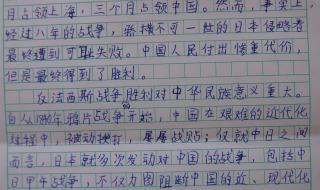 月占领上海，三个月占领中国。然而，事实上，
经过八年的战争，骄横不可一世的日本侵略者
最终遭到可耻失败。中国人民付出惨重代价，
但是最终得到了胜利。
反法西斯战争胜利对中华民族意义重大。
自从1840年鸦片战争开始，中国在艰难的近代化
过程中，被动挨打，屡屡战败；仅就中日之间
而言，日本就多次发动对中国的战争，包括中
日甲午战争，不仅力图阻断中国的近、现代化